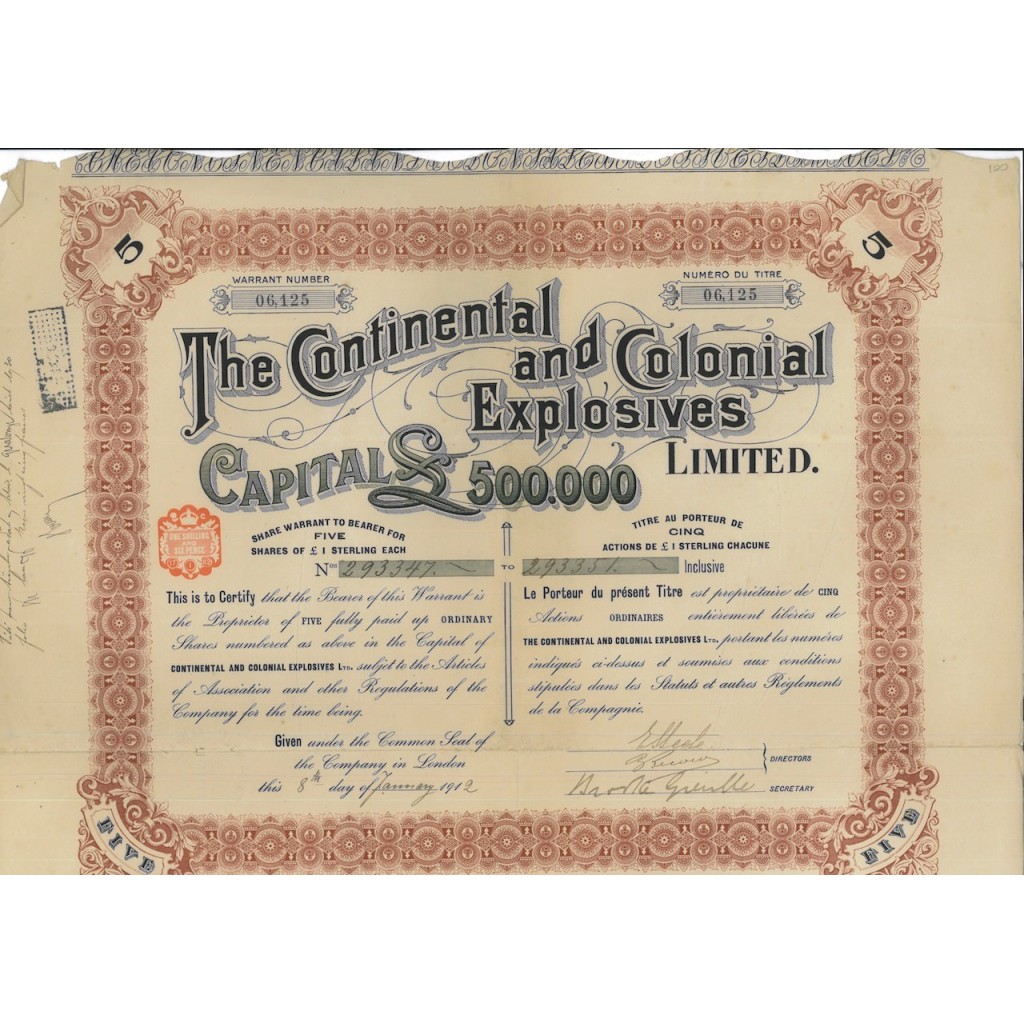 5
5
WARRANT NUMBER
06,125
NUMÉRO DU TITRE
06,125
The Continental
and Colonial
Explosives
LIMITED.
CAPITAL £ 500.000
ONE SHILLING
AND
SIX PENCE
SHARE WARRANT TO BEARER FOR
FIVE
SHARES OF £ 1 STERLING EACH
TITRE AU PORTEUR DE
CINQ
ACTIONS DE £ 1 STERLING CHACUNE
Nos 293347. TO 293351. Inclusive
This is to Certify that the Bearer of this Warrant is
the Proprietor of FIVE fully paid up ORDINARY
Shares numbered as above in the Capital of
CONTINENTAL AND COLONIAL EXPLOSIVES LTD. subject to the Articles
of Association and other Regulations of the
Company for the time being.
Le Porteur du présent Titre est propriétaire de CINQ
Actions ORDINAIRES entièrement libérées de
THE CONTINENTAL AND COLONIAL EXPLOSIVES LTD., portant les numéros
indiqués ci-dessus et soumises aux conditions
stipulées dans les Statuts et autres Règlements
de la Compagnie.
Given under the Common Seal of
the Company in London
this 8th day of January 1912
DIRECTORS
SECRETARY
FIVE
FIVE